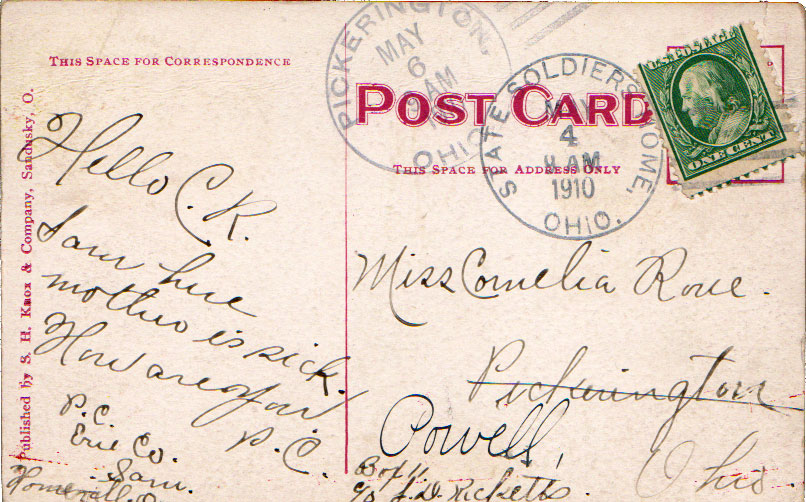 THIS SPACE FOR CORRESPONDENCE
POST CARD
THIS SPACE FOR ADDRESS ONLY
PICKERINGTON,
MAY
6
9 AM
OHIO
STATE SOLDIERS HOME,
MAY
4
8 AM
1910
OHIO.
ONE CENT
Published by S. H. Knox & Company, Sandusky, O.
Hello C. R.
Sam here
mother is sick.
How are you
P. C.
P. C.
Erie Co.
Sam.
Miss Cornelia Rowe.
Pickerington
Powell,
Ohio.
Box 11
c/o J. D. Ricketts.